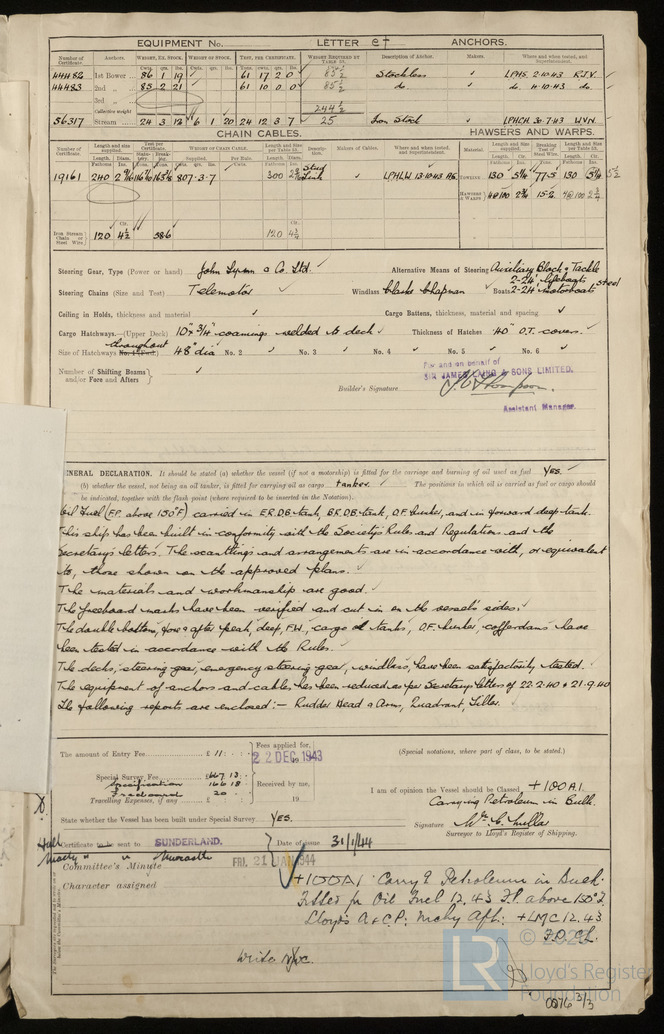 EQUIPMENT No. LETTER et ANCHORS.
Number of Certificate. Anchors. WEIGHT, EX. STOCK. WEIGHT OF STOCK. TEST, PER CERTIFICATE. WEIGHT REQUIRED BY TABLE 53. Description of Anchor. Makers. Where and when tested, and Superintendent.
44482 1st Bower 86 1 19 61 17 2 0 85½ Stockless LPHS. 2-10-43 R.J.V.
44483 2nd " 85 2 21 61 10 0 0 85½ do. do. 4-10-43 do.
3rd "
Collective weight 244½
56317 Stream 24 3 18 6 1 20 24 12 3 7 25 Iron Stock LPHCH. 30-7-43 W.V.N.
CHAIN CABLES. HAWSERS AND WARPS.
Number of Certificate. Length and size supplied. Test per Certificate. WEIGHT OF CHAIN CABLE. Length and size per Table 53. Description. Makers of Cables. Where and when tested, and Superintendent. Material. Length and Size supplied. Breaking Test of Steel Wire. Length and Size per Table 53.
19161 240 807-3-7 300 Stud Link LPHLW. 13-10-43 TOWLINE 130 5¼ 77-5 130 5¼ 5½
HAWSERS & WARPS 4@100 2¾ 15-2 4@100 2¾
Iron Stream Chain or Steel Wire 120 4½ 38.6 120 4¾
Steering Gear, Type (Power or hand) John Lynn & Co. Ltd. Alternative Means of Steering Auxiliary Block & Tackle
Steering Chains (Size and Test) Telemotor Windlass Clarke Chapman Boats 2-24' lifeboats 2-24' motorboats steel
Ceiling in Holds, thickness and material Cargo Battens, thickness, material and spacing
Cargo Hatchways.—(Upper Deck) 10" x ¾" coamings welded to deck Thickness of Hatches .40" O.T. covers.
Size of Hatchways No. 1 (Fwd.) throughout 48" dia No. 2 No. 3 No. 4 No. 5 No. 6
Number of Shifting Beams and/or Fore and Afters
For and on behalf of
SIR JAMES LAING & SONS LIMITED.
Builder's Signature
Assistant Manager.
ENERAL DECLARATION. It should be stated (a) whether the vessel (if not a motorship) is fitted for the carriage and burning of oil used as fuel Yes.
(b) whether the vessel, not being an oil tanker, is fitted for carrying oil as cargo tanker. The positions in which oil is carried as fuel or cargo should
be indicated, together with the flash point (where required to be inserted in the Notation).
Oil Fuel (F.P. above 150°F) carried in E.R.D.B. tank, B.R.D.B. tank, O.F. bunker, and in forward deep tank.
This ship has been built in conformity with the Society's Rules and Regulations and the
Secretary's letters. The scantlings and arrangements are in accordance with, or equivalent
to, those shown on the approved plans.
The materials and workmanship are good.
The freeboard marks have been verified and cut in on the vessel's sides.
The double bottom, fore & after peak, deep, F.W., cargo oil tanks, O.F. bunker, cofferdams have
been tested in accordance with the Rules.
The decks, steering gear, emergency steering gear, windlass, have been satisfactorily tested.
The equipment of anchors and cables has been reduced as per Secretary's letters of 22.2.40 & 21.9.40
The following reports are enclosed:- Rudder Head & Arms, Quadrant, Tiller.
The amount of Entry Fee £ 11 : : Fees applied for, 22 DEC 1943 (Special notations, where part of class, to be stated.)
Special Survey Fee £667 13
Specification 166 18 Received by me,
Freeboard 20
Travelling Expenses, if any £ : : 19
I am of opinion the Vessel should be Classed +100A1.
Carrying Petroleum in Bulk.
State whether the Vessel has been built under Special Survey Yes.
Signature
Surveyor to Lloyd's Register of Shipping.
Hull Certificate to be sent to SUNDERLAND. Date of issue 31/1/44
Machy " " Newcastle
Committee's Minute FRI. 21 JAN 1944
Character assigned +100A1 Carryg Petroleum in Bulk.
Fitted for Oil Fuel 12.43 F.P. above 150°F
Lloyd's A & C.P. Machy Aft. +LMC 12.43
F.D. CL.
Write
© 2020
LR Lloyd's Register Foundation
0076 3/3